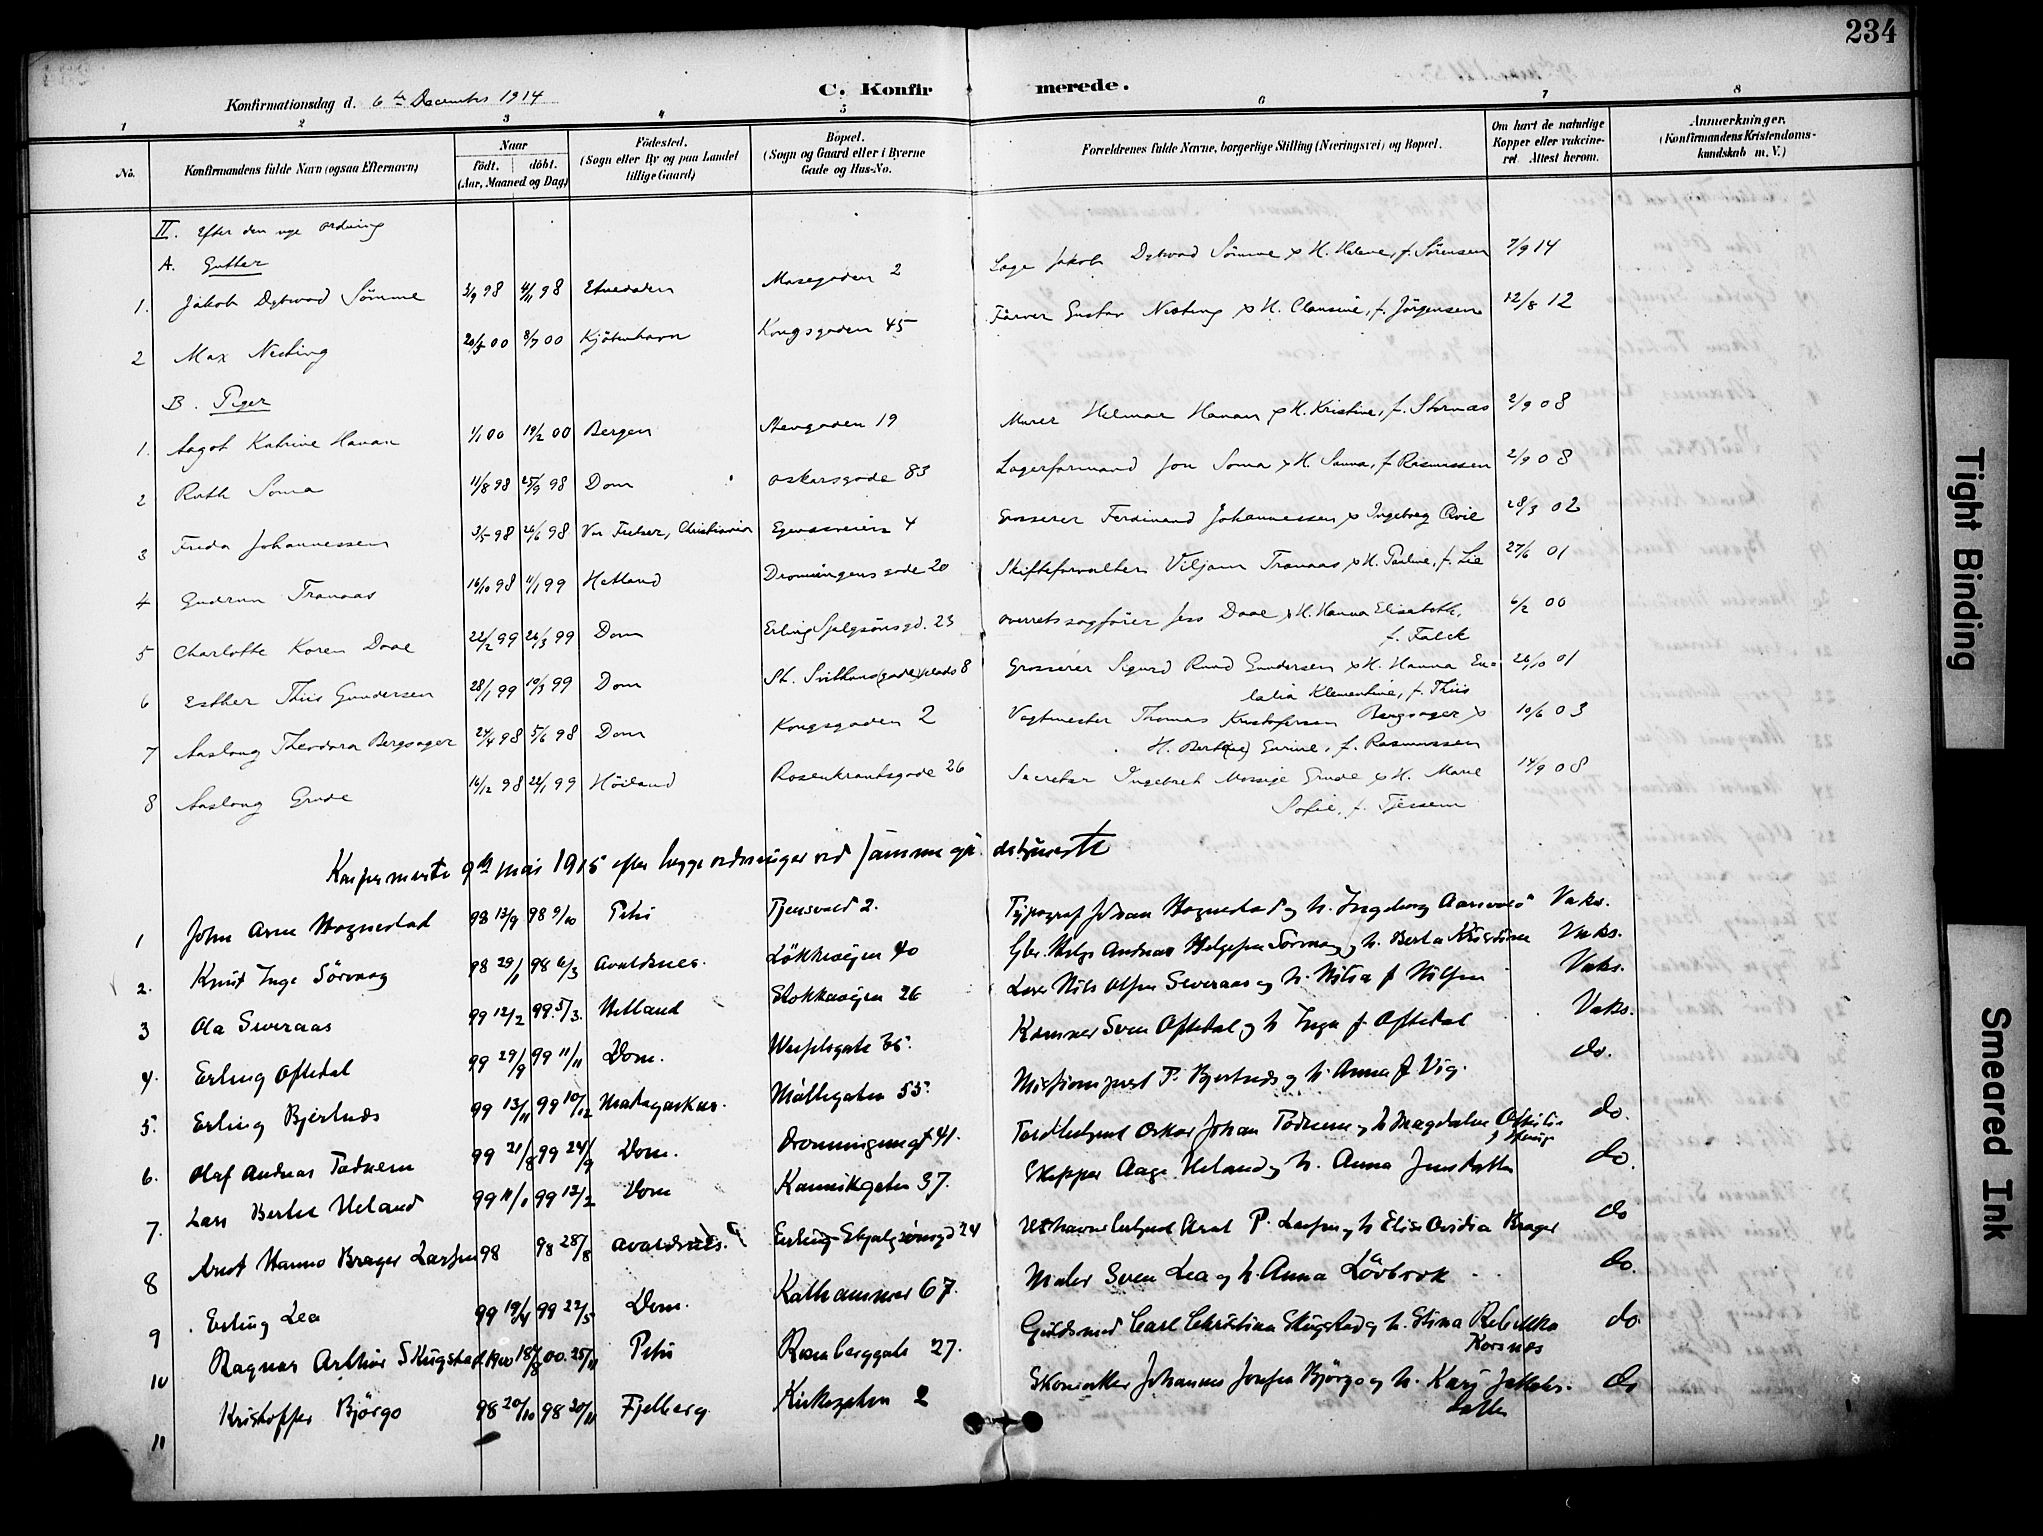 234
C. Konfirmerede.
Konfirmationsdag d. 6te December 1914
1 2 3 4 5 6 7 8
No.
Konfirmandens fulde Navn (ogsaa Efternavn)
Naar
født. døbt.
(Aar, Maaned og Dag)
Fødested.
(Sogn eller By og paa Landet
tillige Gaard)
Bopæl.
(Sogn og Gaard eller i Byerne
Gade og Hus-No.
Forældrenes fulde Navne, borgerlige Stilling (Næringsvei) og Bopæl.
Om havt de naturlige
Kopper eller vakcine-
ret. Attest herom.
Anmærkninger.
(Konfirmandens Kristendoms-
kundskab m. V.)
II. Efter den nye ordning
A. Gutter
1. Jakob Dybwad Sömme 3/9 98 4/11 98 Etnedalen Mosegaden 2 Læge Jakob Dybwad Sömme & H. Helene, f. Sörensen 7/9 14
2 Max Nesting 20/5 00 8/7 00 Kjöbenhavn Kongsgaden 45 Farver Gustav Nesting & H. Clausine, f. Jörgensen 12/8 12
B. Piger
1. Aagot Katrine Hanan 1/1 00 19/2 00 Bergen Stengaden 19 Murer Helmar Hanan & H. Kristine, f. Stornæs 2/9 08
2 Ruth Soma 11/8 98 25/9 98 Dom Oskarsgade 83 Lagerformand Jon Soma & H. Sanna, f. Rasmussen 2/9 08
3 Frida Johannessen 3/5 98 26/6 98 Vor Frelser, Christiania Egenæsveien 4 Grosserer Ferdinand Johannessen & Ingeborg Qvile 28/3 02
4 Gudrun Tranaas 16/10 98 11/1 99 Hetland Dronningensgade 20 Skifteforvalter Viljam Tranaas & H. Pauline, f. Lie 27/6 01
5 Charlotte Koren Daae 22/2 99 26/3 99 Dom Erling Sjalgsönsgd. 23 Overretssagförer Jess Daae & H. Hanna Elisabeth,
f. Falck 6/2 00
6 Esther Thiis Gundersen 28/1 99 19/3 99 Dom St. Svithuns (gade) plads 8 Grosserer Sigurd Rund Gundersen & H. Hanna Eu-
lalia Klementine, f. Thiis 26/10 01
7 Aaslaug Theodora Bergsager 24/4 98 5/6 98 Dom Kongsgaden 2 Vagtmester Thomas Kristofersen Bergsager &
H. Berthe Gurine, f. Rasmussen 10/6 03
8 Aaslaug Grude 16/12 98 22/1 99 Höiland Rosenkrantsgade 26 Secretær Ingebret Mossige Grude & H. Marie
Sofie, f. Tjessem 14/9 08
Konfirmerte 9de mai 1915 efter begge ordninger ved samme gudstjeneste
1 John Arne Hognestad 98 13/9 98 9/10 Petri Tjensvold 2. Typograf Johan Hognestad og h. Ingeborg Vaks.
2. Knut Inge Sörvaag 98 29/1 98 6/3 Avaldsnes. Lökkeveien 40 Gbr. Helge Andreas Helgesen Sörvaag og h. Berta Kristine Vaks.
3 Ola Sweraas 99 12/2 99. 5/3. Hetland Stokkaveien 26 Lærer Nils Olsen Sweraas og h. Nilsa f Nilsen Vaks.
4. Erling Oftedal 99 29/9 99 11/11 Dom. Kæmner Sven Oftedal og h Inga f. Oftedal Vaks.
5. Erling Bjertnæs 99 13/11 99 10/12 Madagaskar. Möllegaten 55. Missionsprest P. Bjertnæs og h. Anna f Vig. do.
6. Olaf Andreas Todnem 99 21/8 99 24/9 Dom. Dronningensgt 41. Toldbetjent Oskar Johan Todnem og h Magdalene do.
7. Lars Bertel Heland 99 11/1 99 12/2 Dom Kannikgaten 37. Skipper Aage Heland og h. Anna Jensdatter do.
8 Arnt Hanno Brager Larsen 98 98 28/8 Avaldsnes. Erling Skjalgsönsgd 24 Arnt P. Larsen og h Elise Ovidia Brager do
9 Erling Lea 99 19/4 99 22/5 Dom. Kalhammer 67. Maler Sven Lea og h. Anna Lövbrok do.
10 Ragnar Arthur Skugstad 1900 18/8 00. 25/11 Petri Rosenberggate 27. Guldsmed Carl Christian Skugstad og h. Stina Rebekka
Korsnes do.
11 Kristoffer Björgo 98 20/10 98 20/11 Fjelberg Kirkegaten 2 Skomaker Johannes Josefsen Björgo og h. Kari Jakobs-
datter do
Tight Binding
Smeared Ink